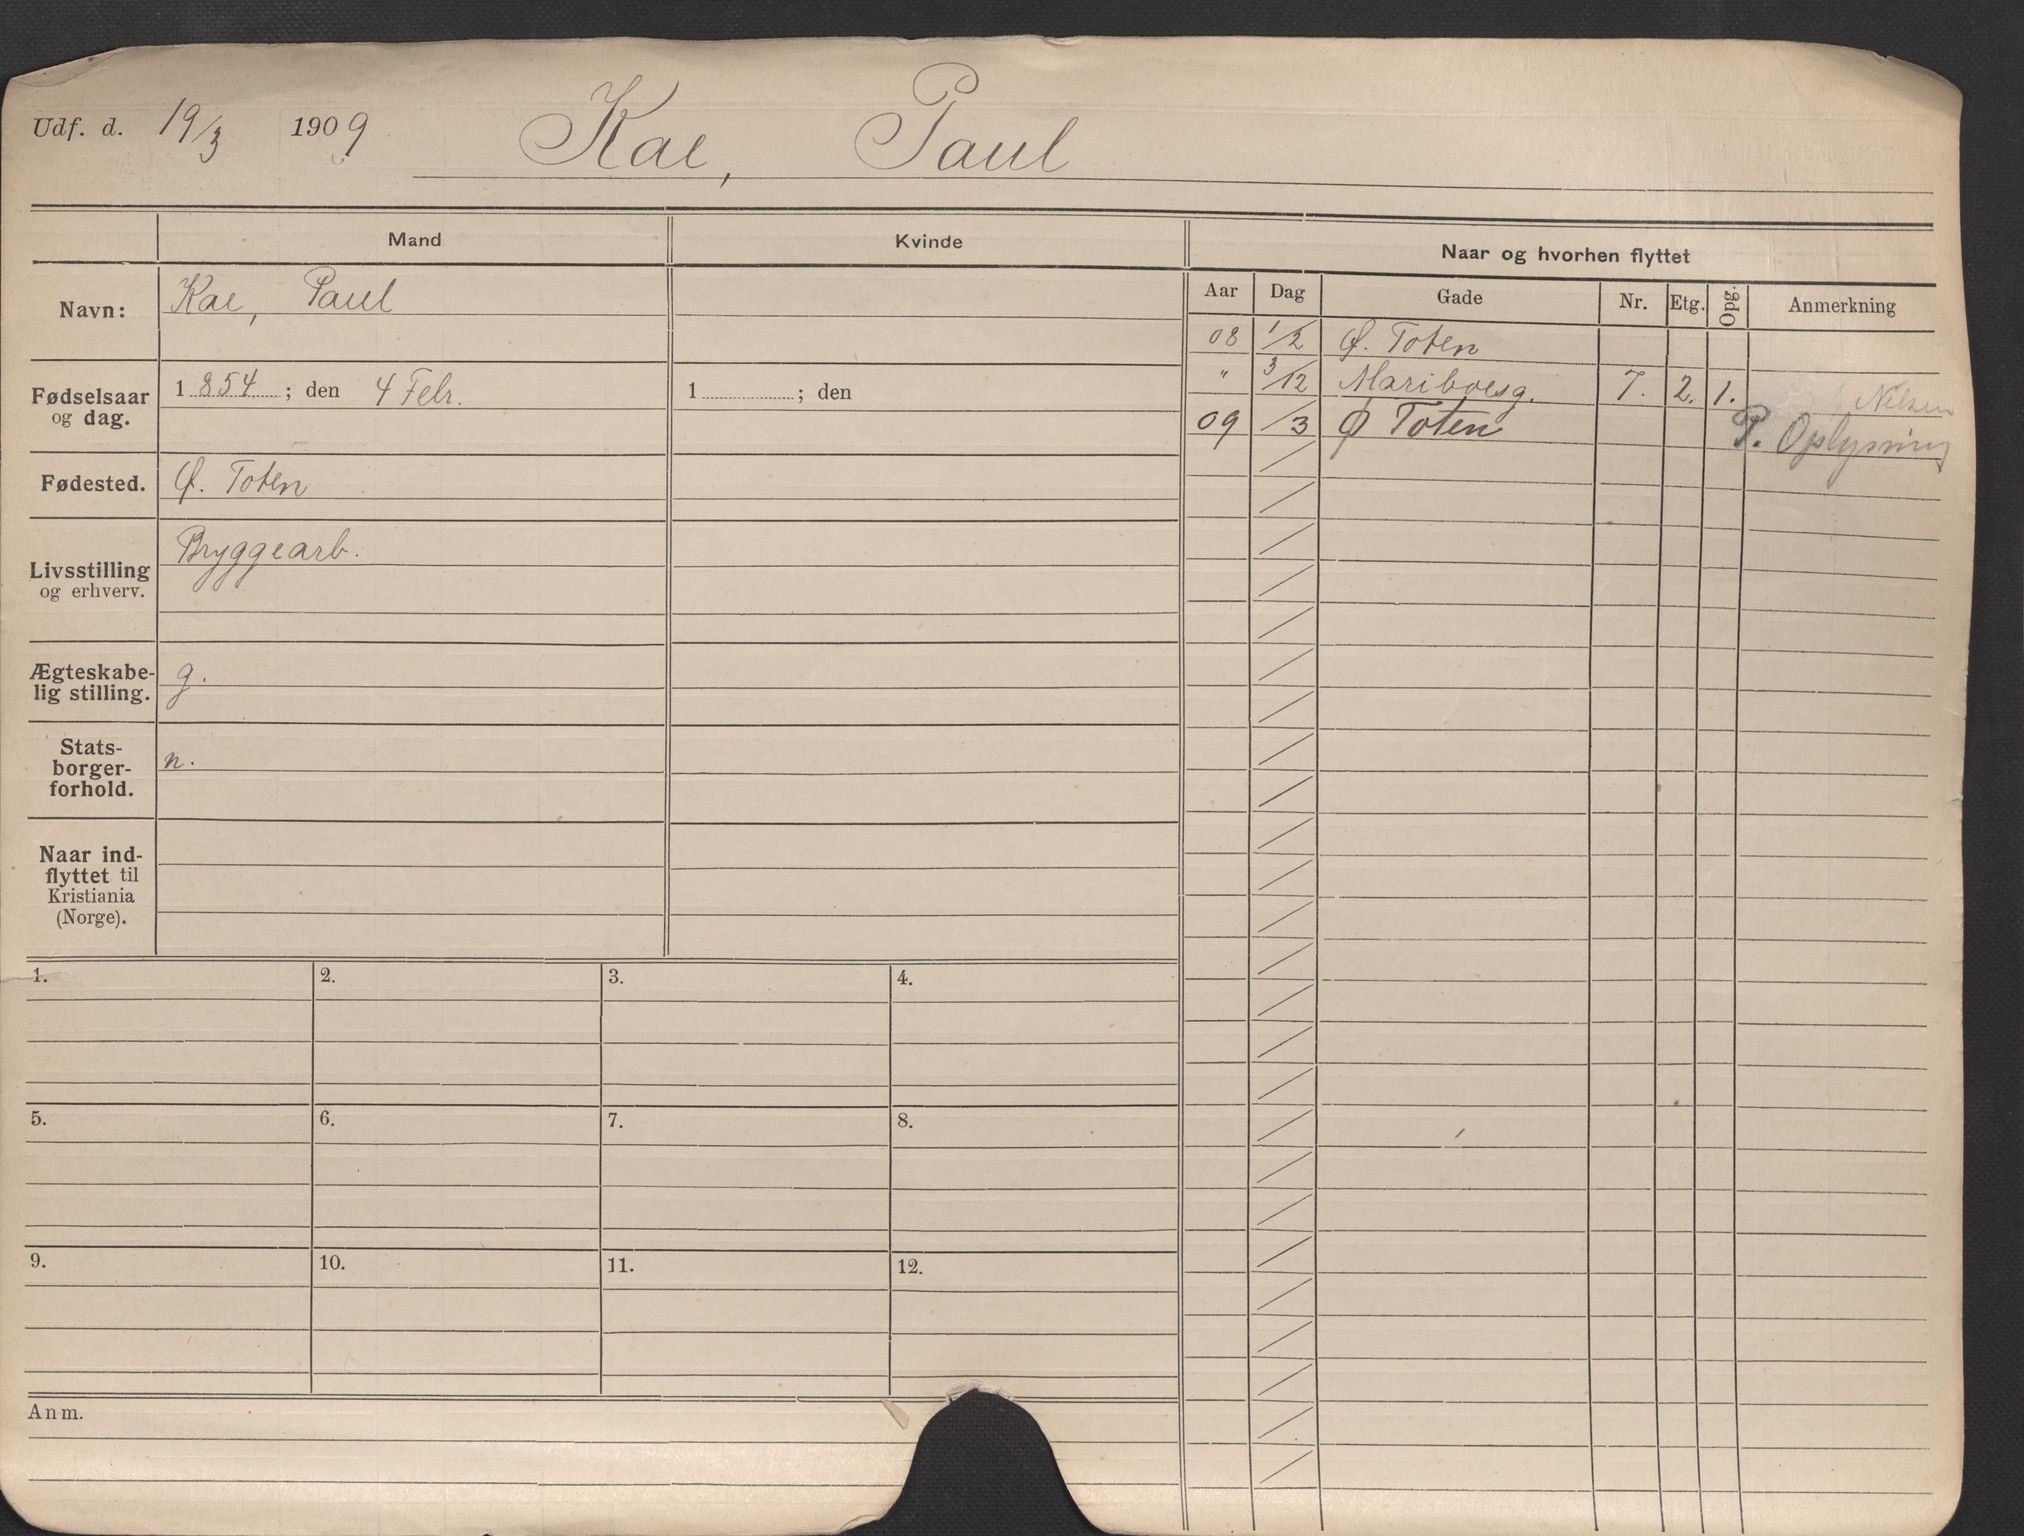 Udf. d. 19/3 1909 Kae, Paul
Mand Kvinde Naar og hvorhen flyttet
Aar Dag Gade Nr. Etg. Opg. Anmerkning
Navn: Kae, Paul
Fødselsaar og dag. 1854; den 4 Febr. 1 ; den
Fødested. Ø. Toten
Livsstilling og erhverv. Bryggearb.
Ægteskabe-
lig stilling. g.
Stats-
borger-
forhold. n.
Naar ind-
flyttet til
Kristiania
(Norge).
08 1/2 Ø. Toten
" 3/12 Mariboesg. 7. 2. 1. Nilsen
09 /3 Ø Toten P. Oplysning
1. 2. 3. 4.
5. 6. 7. 8.
9. 10. 11. 12.
Anm.